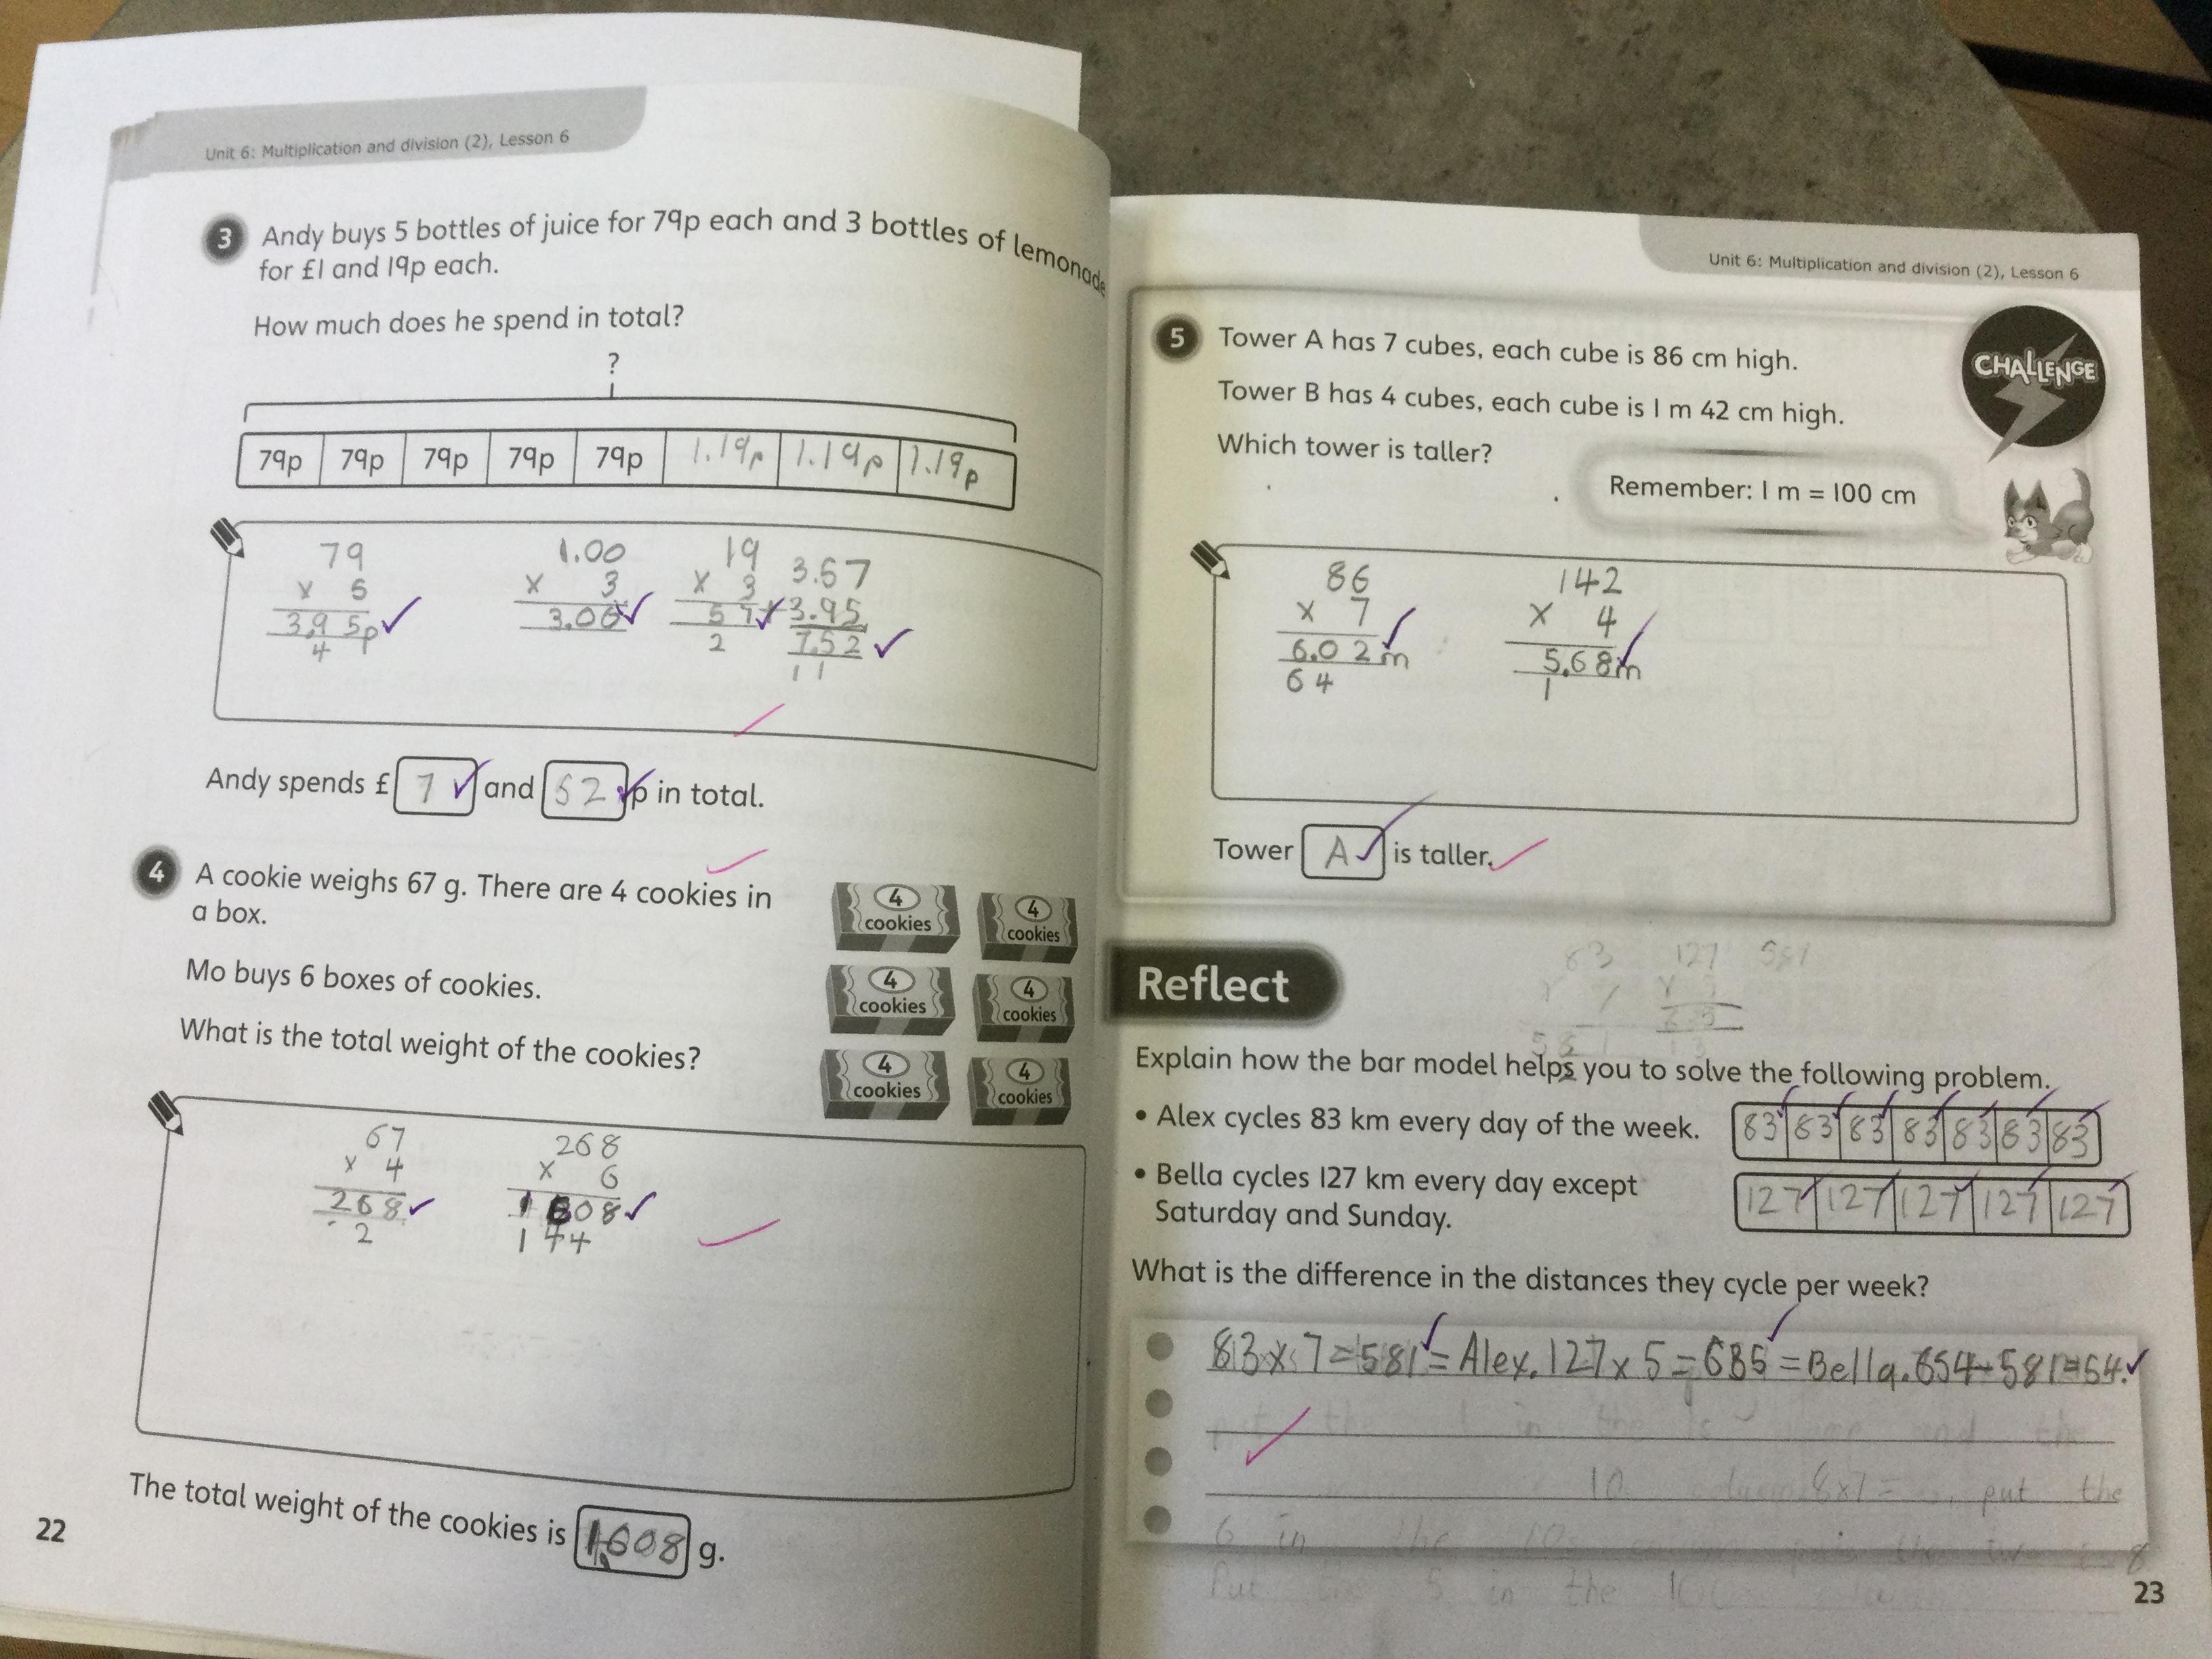 Unit 6: Multiplication and division (2), Lesson 6
3 Andy buys 5 bottles of juice for 79p each and 3 bottles of lemonade
for £1 and 19p each.
How much does he spend in total?
?
79p 79p 79p 79p 79p 1.19p 1.19p 1.19p
79 1.00 19 3.57
x 5 x 3 x 3 3.95
3.95p 3.00 57 7.52
4 2 1 1
Andy spends £ 7 and 52 p in total.
4 A cookie weighs 67 g. There are 4 cookies in
a box.
Mo buys 6 boxes of cookies.
What is the total weight of the cookies?
4 cookies 4 cookies
4 cookies 4 cookies
4 cookies 4 cookies
67 268
x 4 x 6
268 1608
2 1 4 4
The total weight of the cookies is 1608 g.
22
Unit 6: Multiplication and division (2), Lesson 6
CHALLENGE
5 Tower A has 7 cubes, each cube is 86 cm high.
Tower B has 4 cubes, each cube is 1 m 42 cm high.
Which tower is taller?
Remember: 1 m = 100 cm
86 142
x 7 x 4
6.02m 5.68m
6 4 1
Tower A is taller.
83 127 581
Reflect
Explain how the bar model helps you to solve the following problem.
• Alex cycles 83 km every day of the week.
83 83 83 83 83 83 83
• Bella cycles 127 km every day except
Saturday and Sunday.
127 127 127 127 127
What is the difference in the distances they cycle per week?
83 x 7 = 581 = Alex. 127 x 5 = 635 = Bella. 654-581=54.
put the in the and the
10 8x7= put the
6 in the 10s
Put 5 in the
23